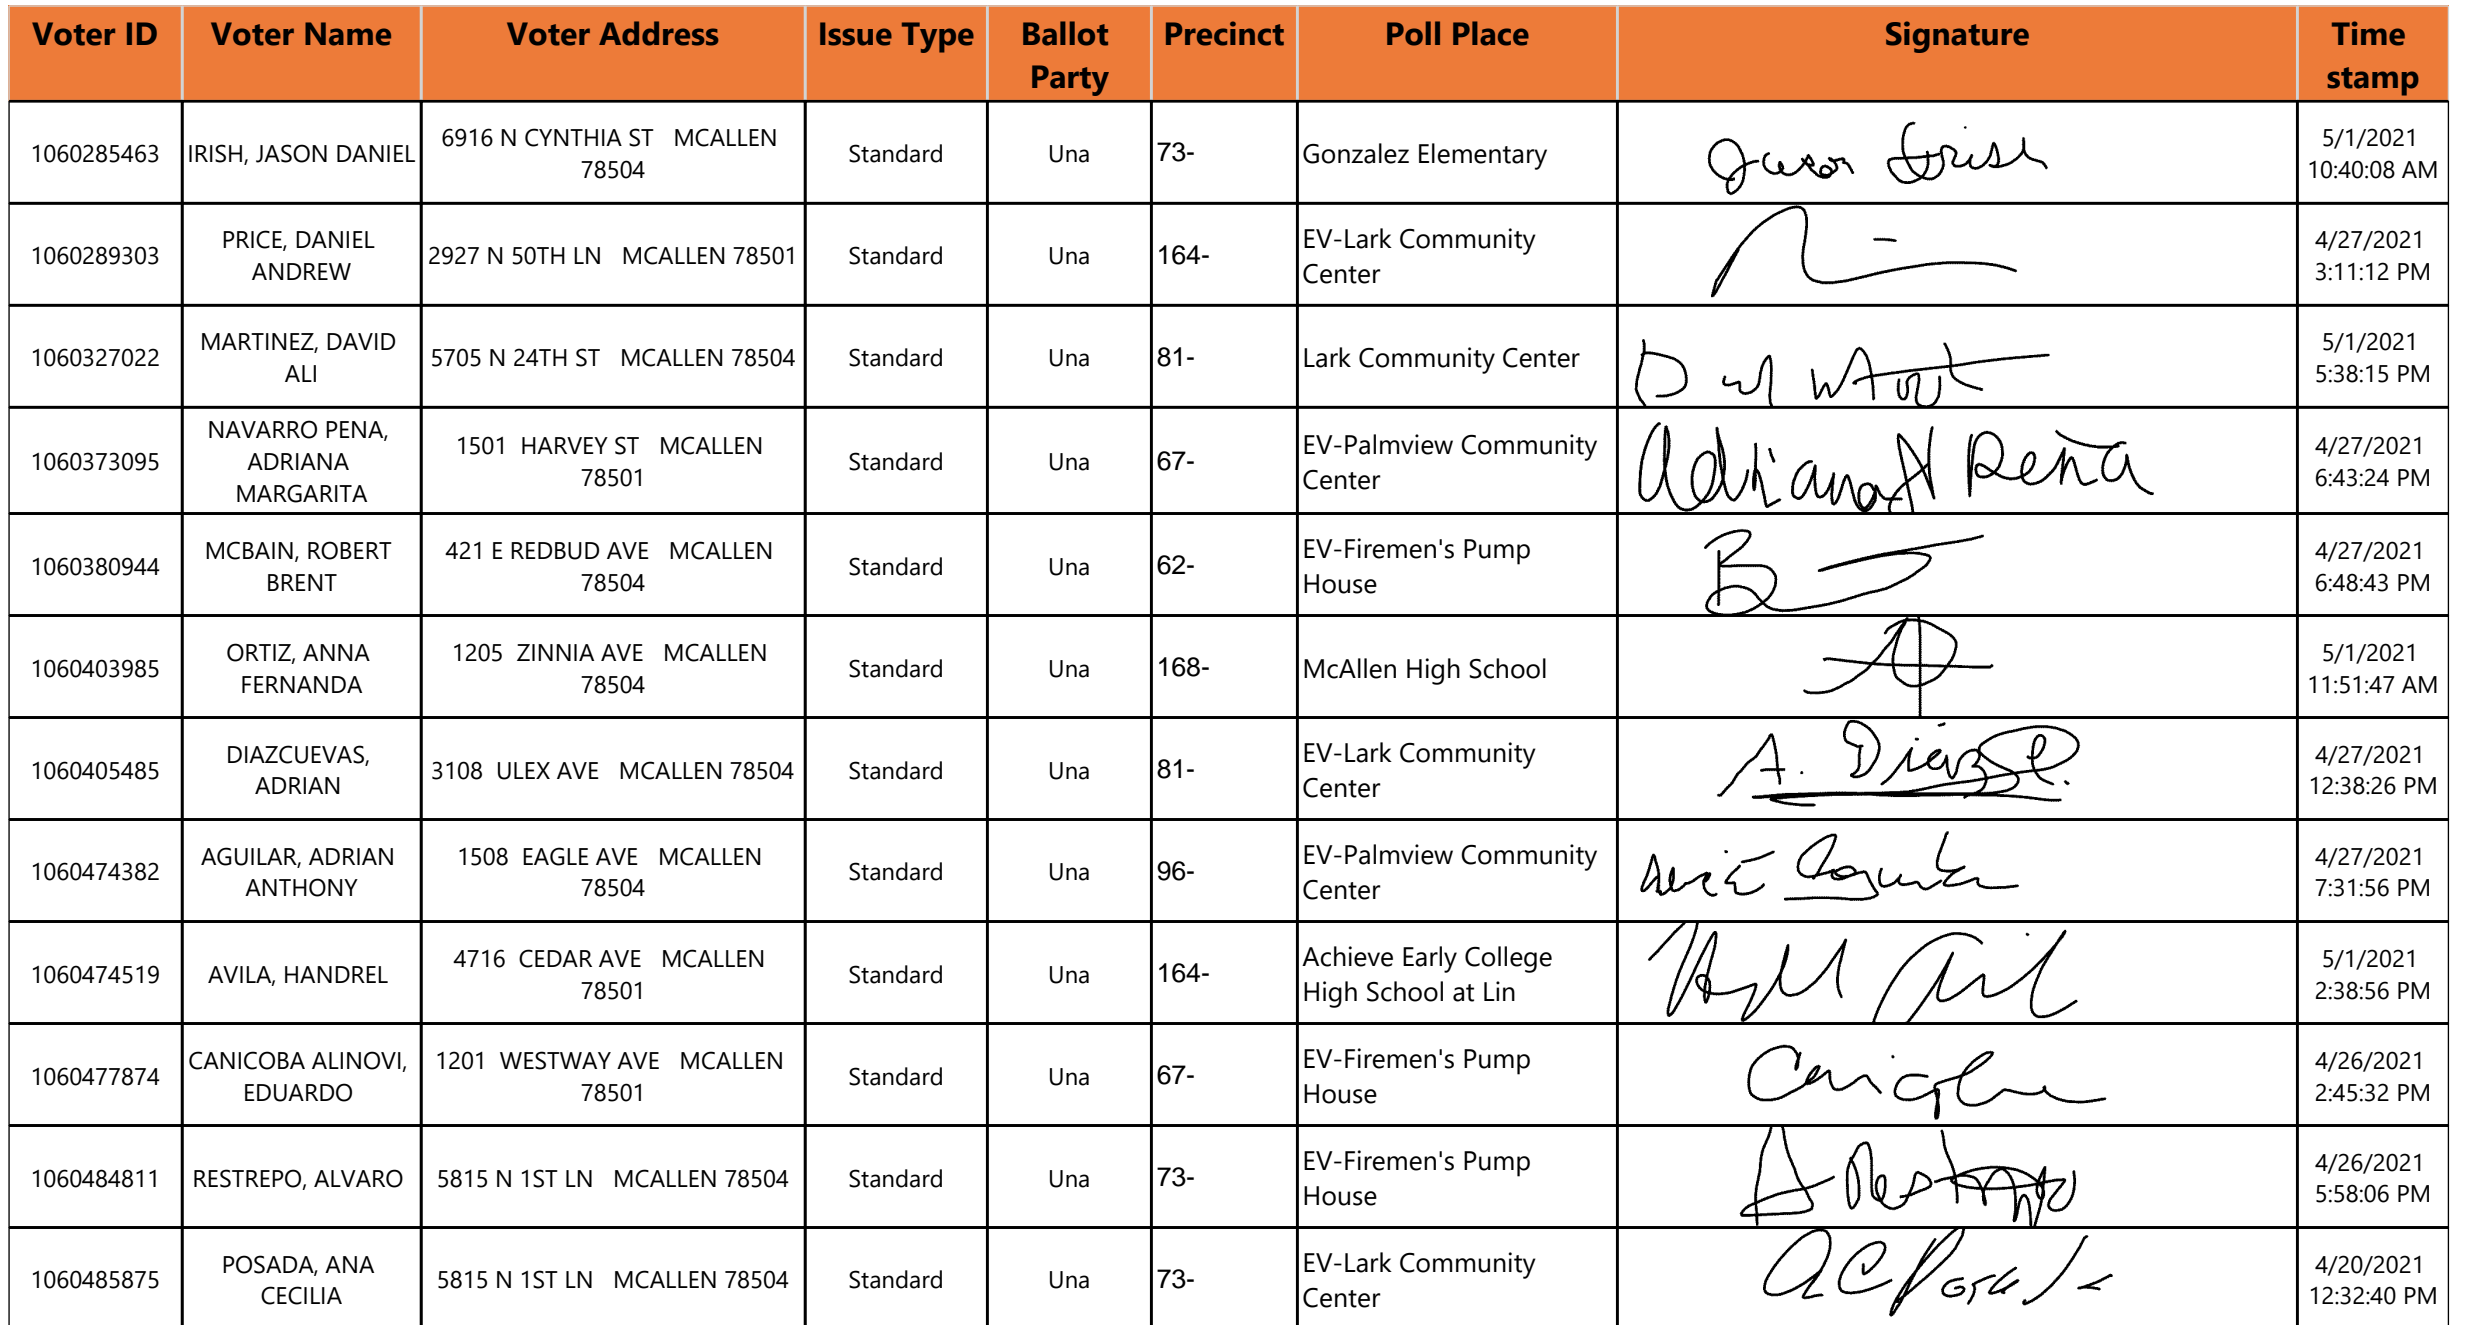 Voter ID Voter Name Voter Address Issue Type Ballot Party Precinct Poll Place Signature Time stamp
1060285463 IRISH, JASON DANIEL 6916 N CYNTHIA ST MCALLEN 78504 Standard Una 73- Gonzalez Elementary Jason Irish 5/1/2021 10:40:08 AM
1060289303 PRICE, DANIEL ANDREW 2927 N 50TH LN MCALLEN 78501 Standard Una 164- EV-Lark Community Center 4/27/2021 3:11:12 PM
1060327022 MARTINEZ, DAVID ALI 5705 N 24TH ST MCALLEN 78504 Standard Una 81- Lark Community Center 5/1/2021 5:38:15 PM
1060373095 NAVARRO PENA, ADRIANA MARGARITA 1501 HARVEY ST MCALLEN 78501 Standard Una 67- EV-Palmview Community Center Adriana N Peña 4/27/2021 6:43:24 PM
1060380944 MCBAIN, ROBERT BRENT 421 E REDBUD AVE MCALLEN 78504 Standard Una 62- EV-Firemen's Pump House 4/27/2021 6:48:43 PM
1060403985 ORTIZ, ANNA FERNANDA 1205 ZINNIA AVE MCALLEN 78504 Standard Una 168- McAllen High School 5/1/2021 11:51:47 AM
1060405485 DIAZCUEVAS, ADRIAN 3108 ULEX AVE MCALLEN 78504 Standard Una 81- EV-Lark Community Center A. Diaz C. 4/27/2021 12:38:26 PM
1060474382 AGUILAR, ADRIAN ANTHONY 1508 EAGLE AVE MCALLEN 78504 Standard Una 96- EV-Palmview Community Center 4/27/2021 7:31:56 PM
1060474519 AVILA, HANDREL 4716 CEDAR AVE MCALLEN 78501 Standard Una 164- Achieve Early College High School at Lin 5/1/2021 2:38:56 PM
1060477874 CANICOBA ALINOVI, EDUARDO 1201 WESTWAY AVE MCALLEN 78501 Standard Una 67- EV-Firemen's Pump House 4/26/2021 2:45:32 PM
1060484811 RESTREPO, ALVARO 5815 N 1ST LN MCALLEN 78504 Standard Una 73- EV-Firemen's Pump House A Restrepo 4/26/2021 5:58:06 PM
1060485875 POSADA, ANA CECILIA 5815 N 1ST LN MCALLEN 78504 Standard Una 73- EV-Lark Community Center AC Posada 4/20/2021 12:32:40 PM